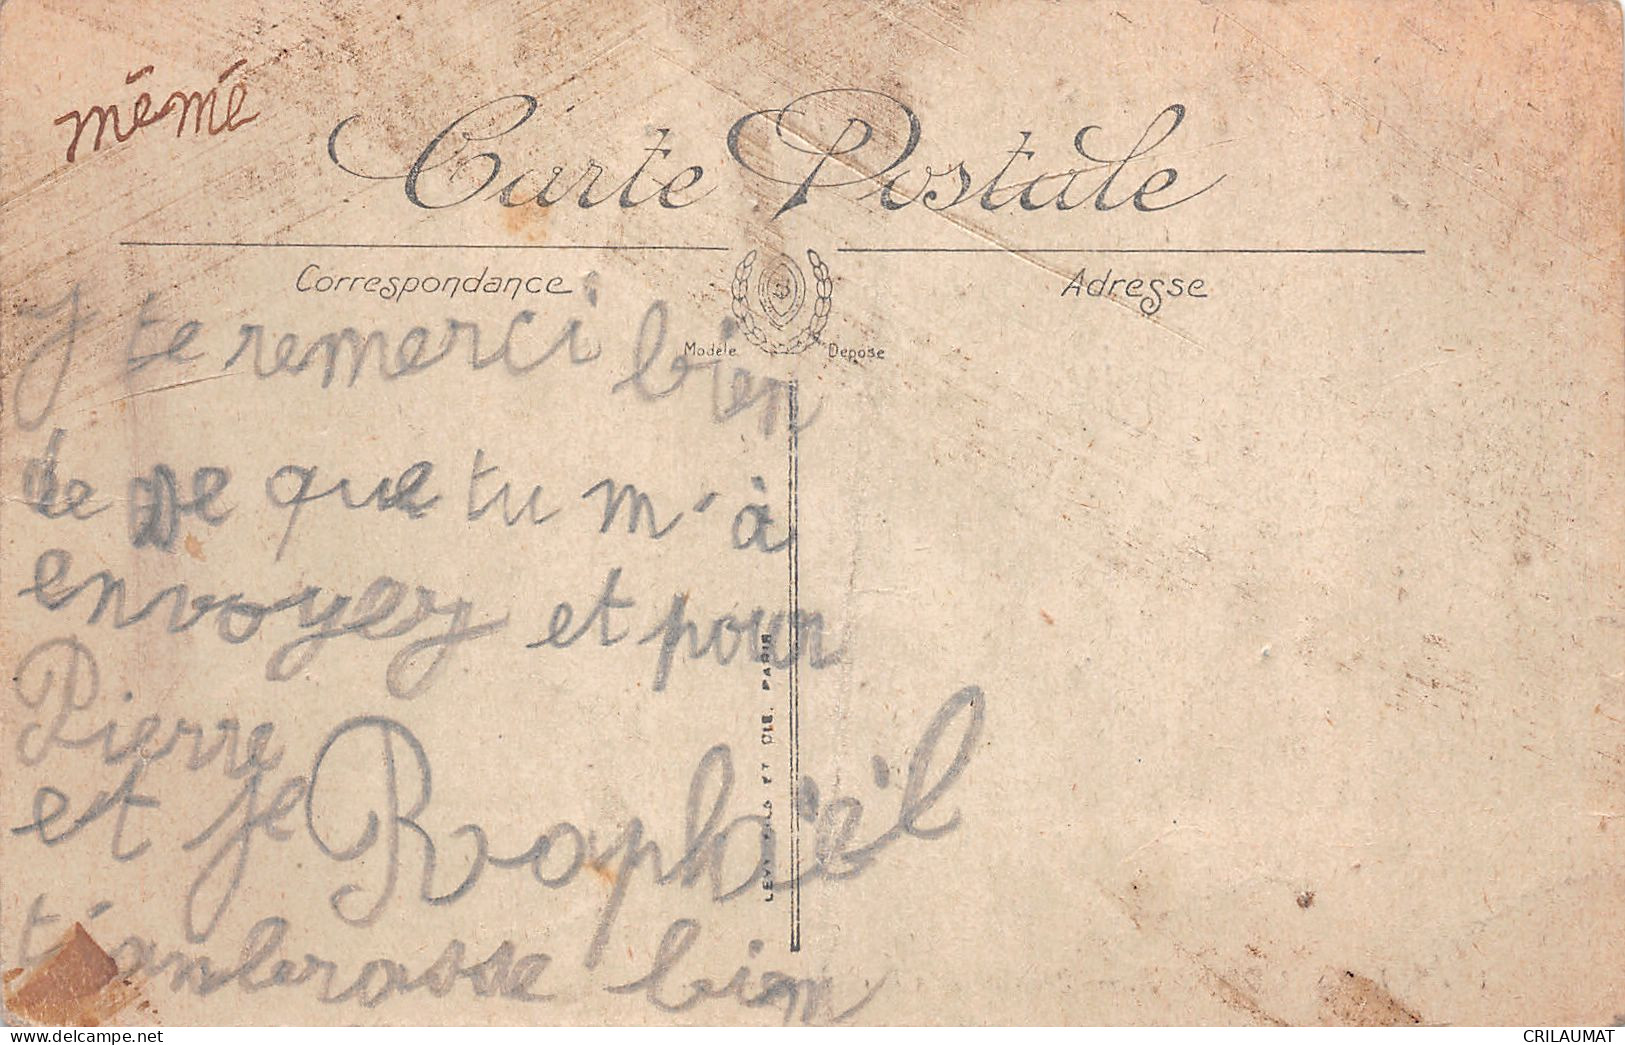 mémé
Carte Postale
Correspondance
Adresse
Modèle Déposé
J te remerci bien
de ce que tu m'à
envoyer et pour
Pierre
et je Raphiel
t'anbrasse bien
LEVY FILS ET CIE. PARIS
CRILAUMAT